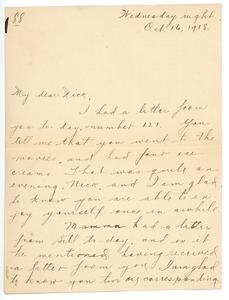 88
Wednesday night
Oct 16, 1918.
My dear Nick,
I had a letter from
you to-day, number 121. You
tell me that you went to the
movies, and had four ice
creams. That was quite an
evening, Nick, and I am glad
to know you are able to en-
joy yourself once in awhile.
Mamma had a letter
from Bill to-day, and in it
he mentioned having received
a letter from you. I am glad
to know you two are corresponding